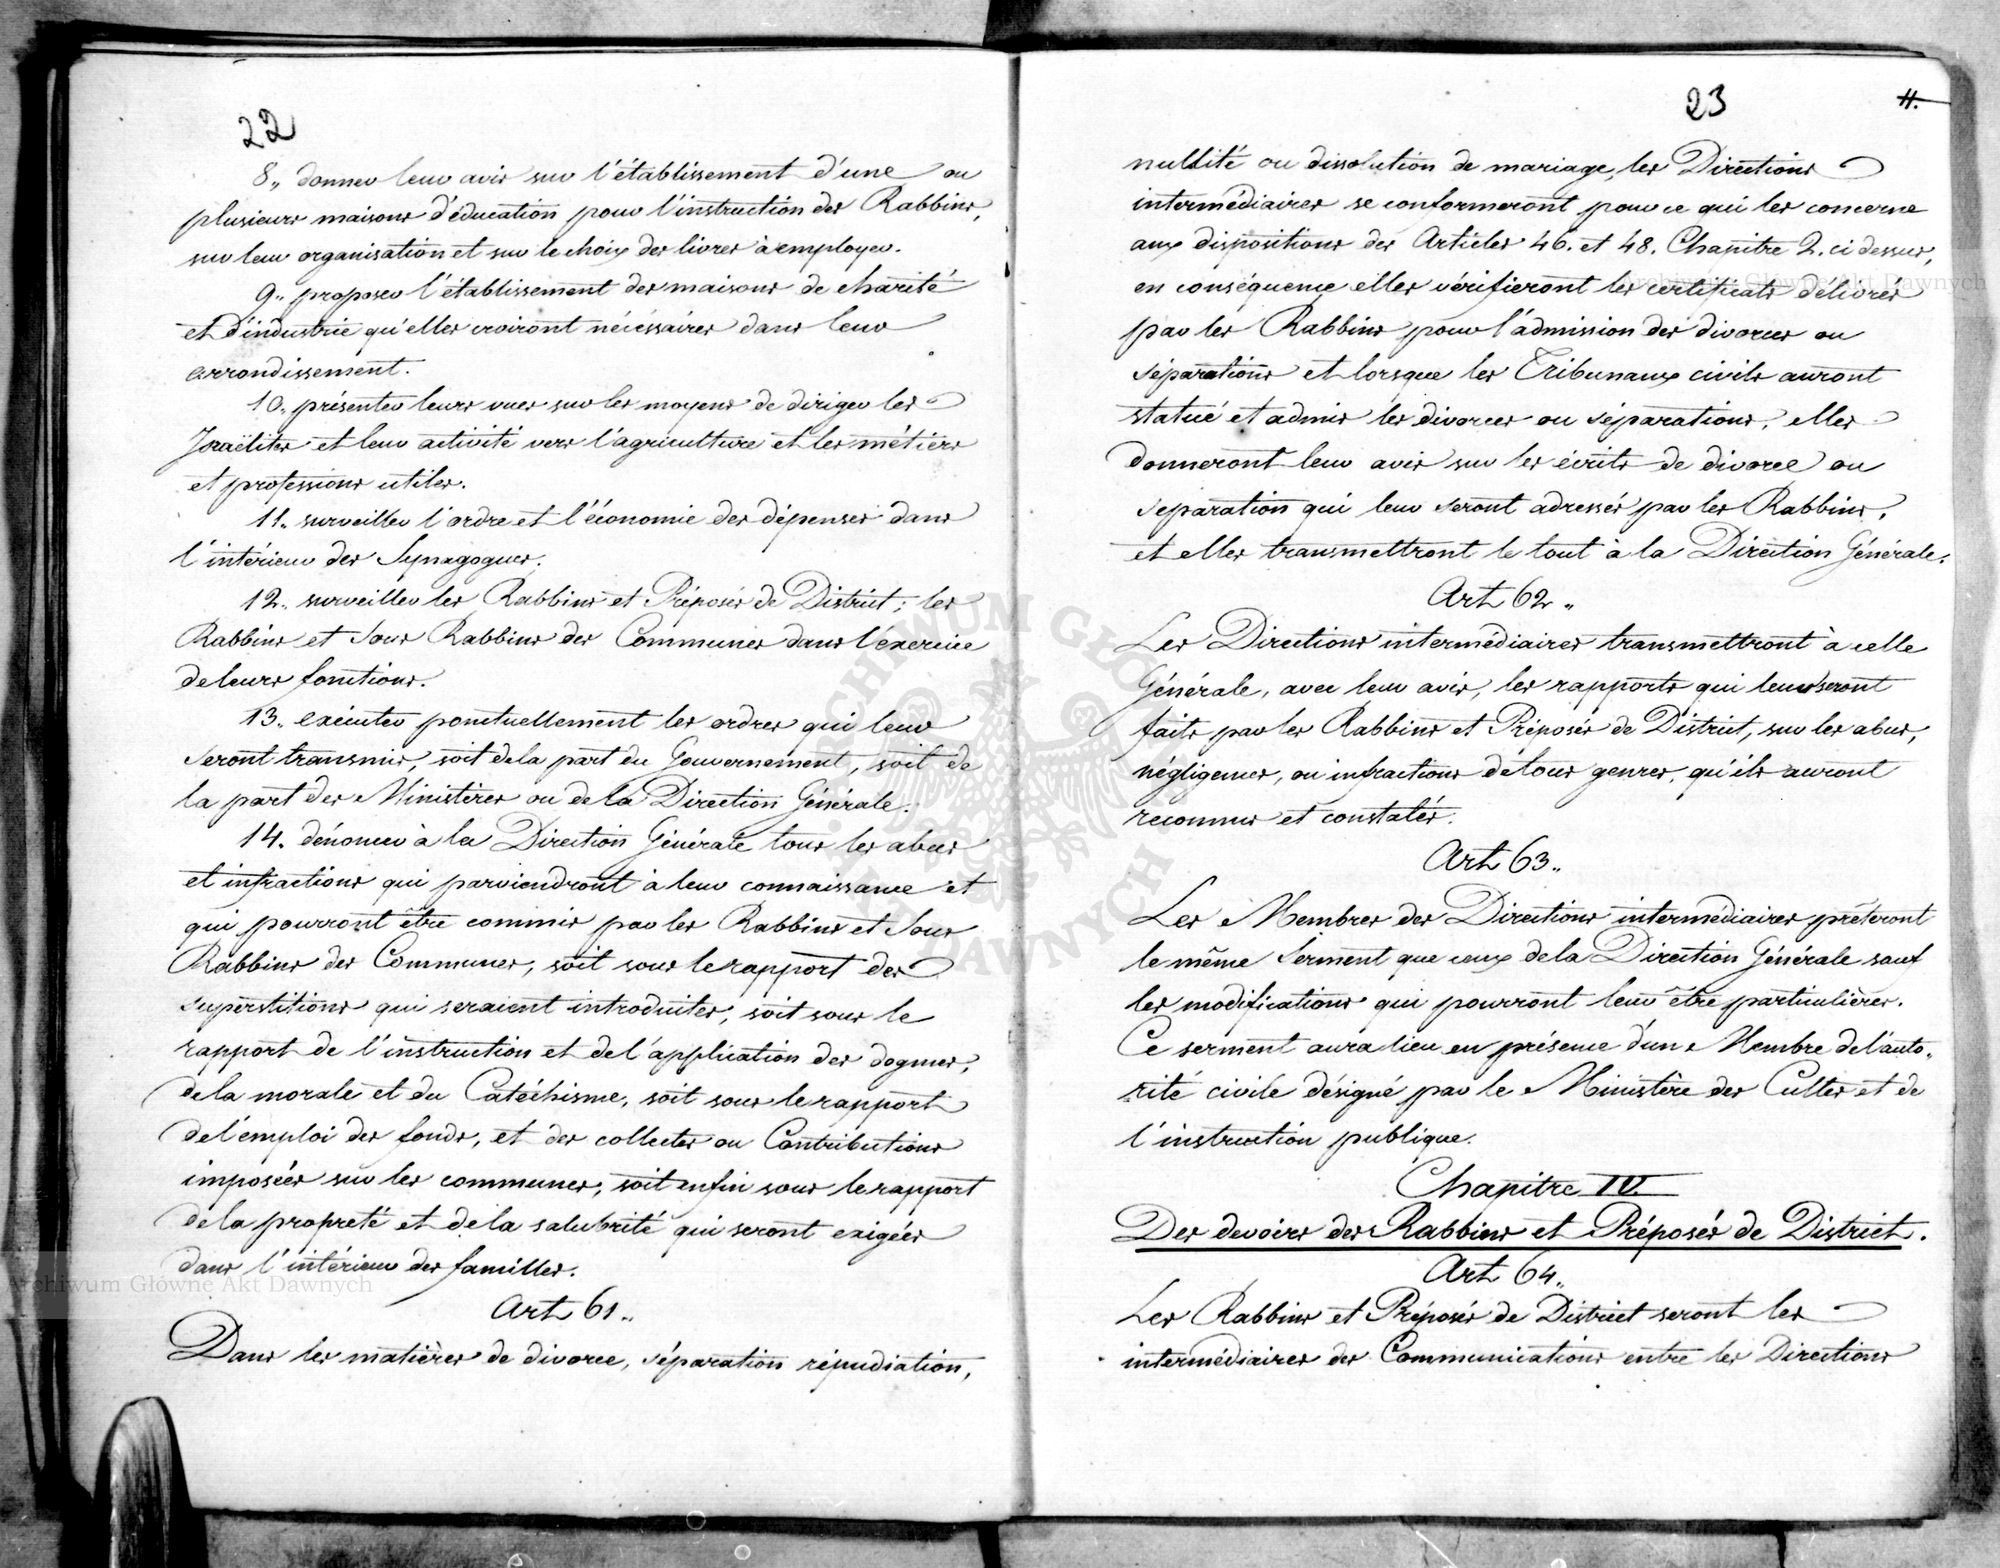 22
8,, donner leur avis sur l'établissement d'une ou
plusieurs maisons d'éducation pour l'instruction des Rabbins,
sur leur organisation et sur le choix des livres à employer.
9,, proposer l'établissement des maisons de charité
et d'industrie qu'elles croiront nécéssaires dans leur
arrondissement.
10,, présenter leurs vues sur les moyens de diriger les
Israëlites et leur activité vers l'agriculture et les métiers
et professions utiles.
11,, surveiller l'ordre et l'économie des dépenses dans
l'intérieur des Synagogues.
12,, surveiller les Rabbins et Préposés de District; les
Rabbins et Sous Rabbins des Communes dans l'exercice
de leurs fonctions.
13,, exécuter ponctuellement les ordres qui leur
seront transmis, soit de la part du Gouvernement, soit de
la part des Ministères ou de la Direction Générale.
14. dénoncer à la Direction Générale tous les abus
et infractions qui parviendront à leur connaissance et
qui pourront être commis par les Rabbins et Sous
Rabbins des Communes, soit sous le rapport des
superstitions qui seraient introduites, soit sous le
rapport de l'instruction et de l'application des dogmes,
de la morale et du Catéchisme, soit sous le rapport
de l'emploi des fonds, et des collectes ou Contributions
imposées sur les communes, soit enfin sous le rapport
de la propreté et de la salubrité qui seront exigées
dans l'intérieur des familles.
Art 61,,
Dans les matières de divorce, séparation répudiation,
23
11.
nullité ou dissolution de mariage, les Directions
intermédiaires se conformeront pour ce qui les concerne
aux dispositions des Articles 46. et 48. Chapitre 2. ci dessus,
en conséquence elles vérifieront les certificats délivrés
par les Rabbins pour l'admission des divorces ou
séparations et lorsque les Tribunaux civils auront
statué et admis les divorces ou séparations, elles
donneront leur avis sur les écrits de divorce ou
separation qui leur seront adressés par les Rabbins,
et elles transmettront le tout à la Direction Générale.
Art 62,,
Les Directions intermédiaires transmettront à celle
Générale, avec leur avis, les rapports qui leur seront
faits par les Rabbins et Préposés de District, sur les abus,
négligences, ou infractions de tous genres, qu'ils auront
reconnus et constatés.
Art 63,,
Les Membres des Directions intermédiaires prêteront
le même Serment que ceux de la Direction Générale sauf
les modifications qui pourront leur être particulières.
Ce serment aura lieu en présence d'un Membre de l'auto,,
rité civile désigné par le Ministère des Cultes et de
l'instruction publique.
Chapitre IV.
Des devoirs des Rabbins et Préposés de District.
Art 64,,
Les Rabbins et Préposés de District seront les
intermédiaires des Communications entre les Directions
Archiwum Główne Akt Dawnych
Archiwum Główne Akt Dawnych